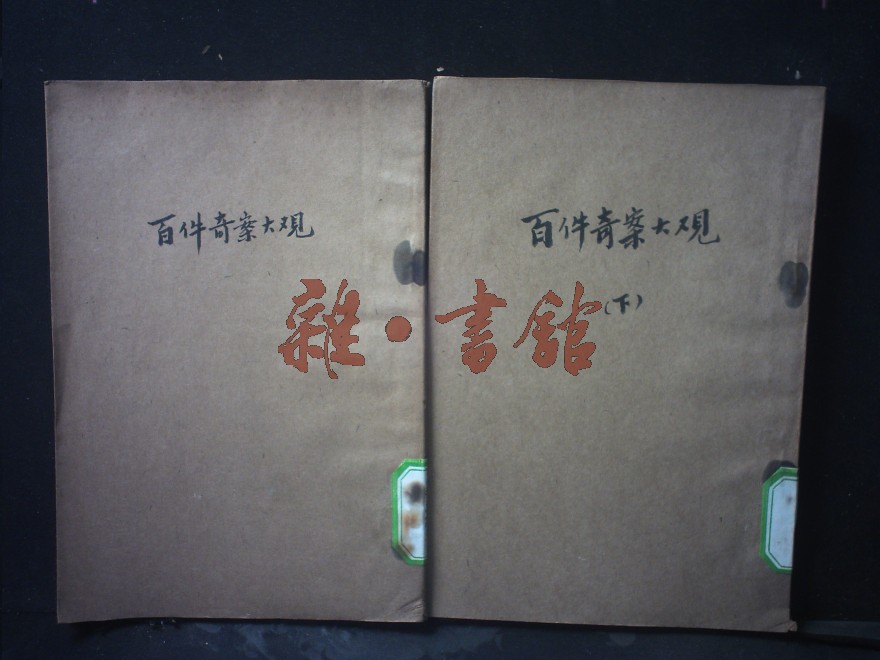 百件奇案大观
百件奇案大观
(下)
雜·書館